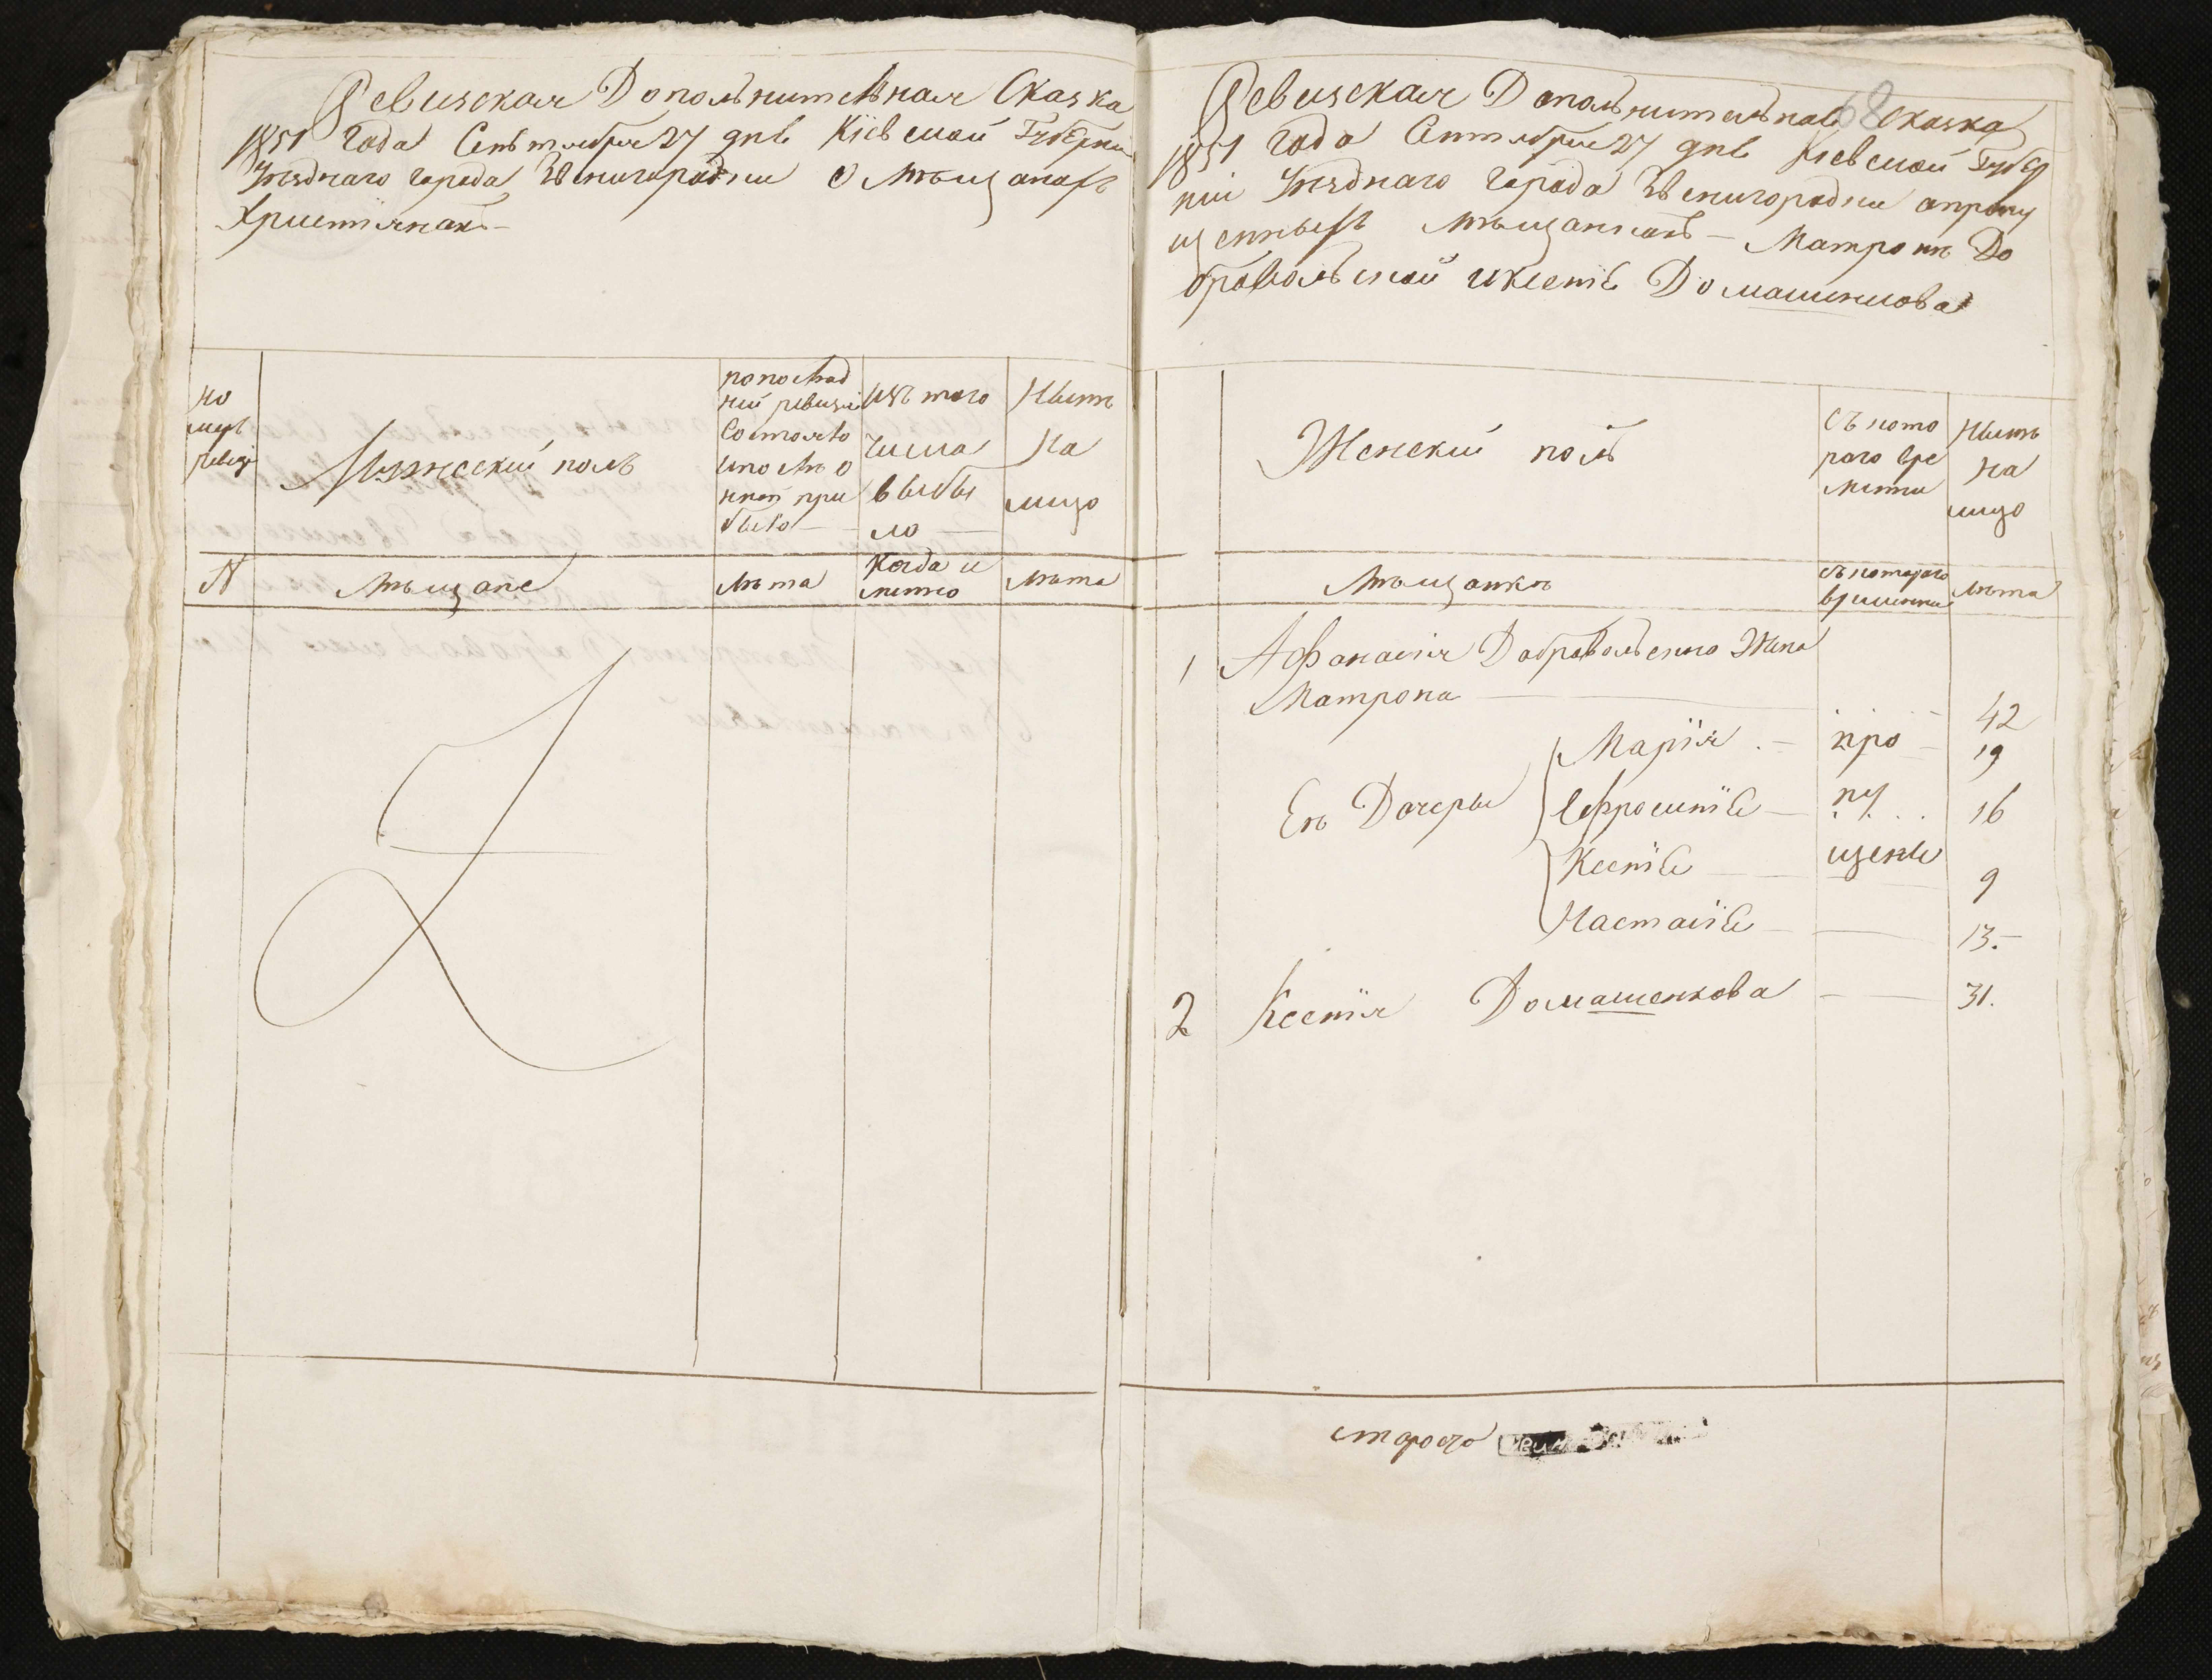 Ревизская Дополнительная Сказка
1851 Года Сентября 27 дня Кіевской Губерніи
Уѣзднаго Города Звенигородки О Мѣщанахъ
Християнахъ
но
меръ
ревиз
Мужеский полъ
по послѣд
ней ревизіи
Состояло
и послѣ о
ной при
было
Изъ того
числа
выбы
ло
Нынѣ
На
лицо
N
Мѣщане
Лѣта
Когда и
менно
Лѣта
68
Ревизская Дополнительная Сказка
1851 Года Сентября 27 дня Кіевской Губер
ніи Уѣзднаго Города Звенигородки о пропу
щенныхъ Мѣщанкахъ Матронѣ До
бровольской и Ксеніи Домашенкова
Женский полъ
Съ кото
раго вре
мени
Нынѣ
На
лицо
Мѣщанкѣ
съ котораго
времени
Лѣта
1 Афанасія Добровольскаго Жена
Матрона 42
Ея Дочеры
Марія про 19
Ефросинія пу 16
Ксенія щены 9
Настасія 13.
2 Ксенія Домашенкова 31.
староста